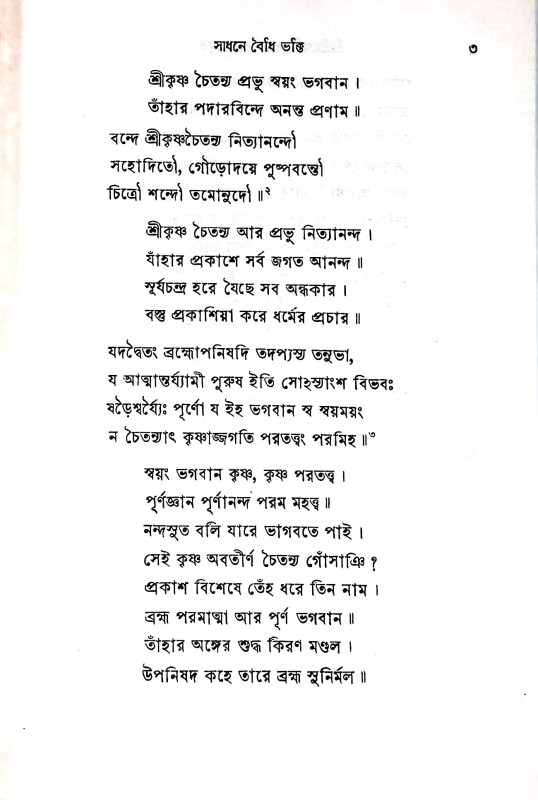 সাধনে বৈধি ভক্তি ৩
শ্রীকৃষ্ণ চৈতন্য প্রভু স্বয়ং ভগবান ।
তাঁহার পদারবিন্দে অনন্ত প্রণাম ॥
বন্দে শ্রীকৃষ্ণচৈতন্য নিত্যানন্দৌ
সহোদিতৌ, গৌড়োদয়ে পুষ্পবন্তৌ
চিত্রৌ শন্দৌ তমোনুদৌ ॥২
শ্রীকৃষ্ণ চৈতন্য আর প্রভু নিত্যানন্দ ।
যাঁহার প্রকাশে সর্ব জগত আনন্দ ॥
সূর্যচন্দ্র হরে যৈছে সব অন্ধকার ।
বস্তু প্রকাশিয়া করে ধর্মের প্রচার ॥
যদদ্বৈতং ব্রহ্মোপনিষদি তদপ্যস্য তনুভা,
য আত্মান্তর্য্যামী পুরুষ ইতি সোহস্যাংশ বিভবঃ
ষড়ৈশ্বর্য্যৈঃ পূর্ণো য ইহ ভগবান স্ব স্বয়ময়ং
ন চৈতন্যাৎ কৃষ্ণাজ্জগতি পরতত্ত্বং পরমিহ ॥৩
স্বয়ং ভগবান কৃষ্ণ, কৃষ্ণ পরতত্ত্ব ।
পূর্ণজ্ঞান পূর্ণানন্দ পরম মহত্ত্ব ॥
নন্দসুত বলি যারে ভাগবতে পাই ।
সেই কৃষ্ণ অবতীর্ণ চৈতন্য গোঁসাঞি ?
প্রকাশ বিশেষে তেঁহ ধরে তিন নাম ।
ব্রহ্ম পরমাত্মা আর পূর্ণ ভগবান ॥
তাঁহার অঙ্গের শুদ্ধ কিরণ মণ্ডল ।
উপনিষদ কহে তারে ব্রহ্ম সুনির্মল ॥